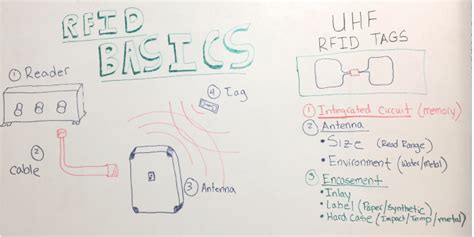 RFID
BASICS
① Reader
② cable
③ Antenna
④ Tag
UHF
RFID TAGS
① Integrated Circuit (memory)
② Antenna
• Size (Read Range)
• Environment (Water/metal)
③ Encasement
• Inlay
• Label (Paper/synthetic)
• Hard Case (Impact/Temp/metal)